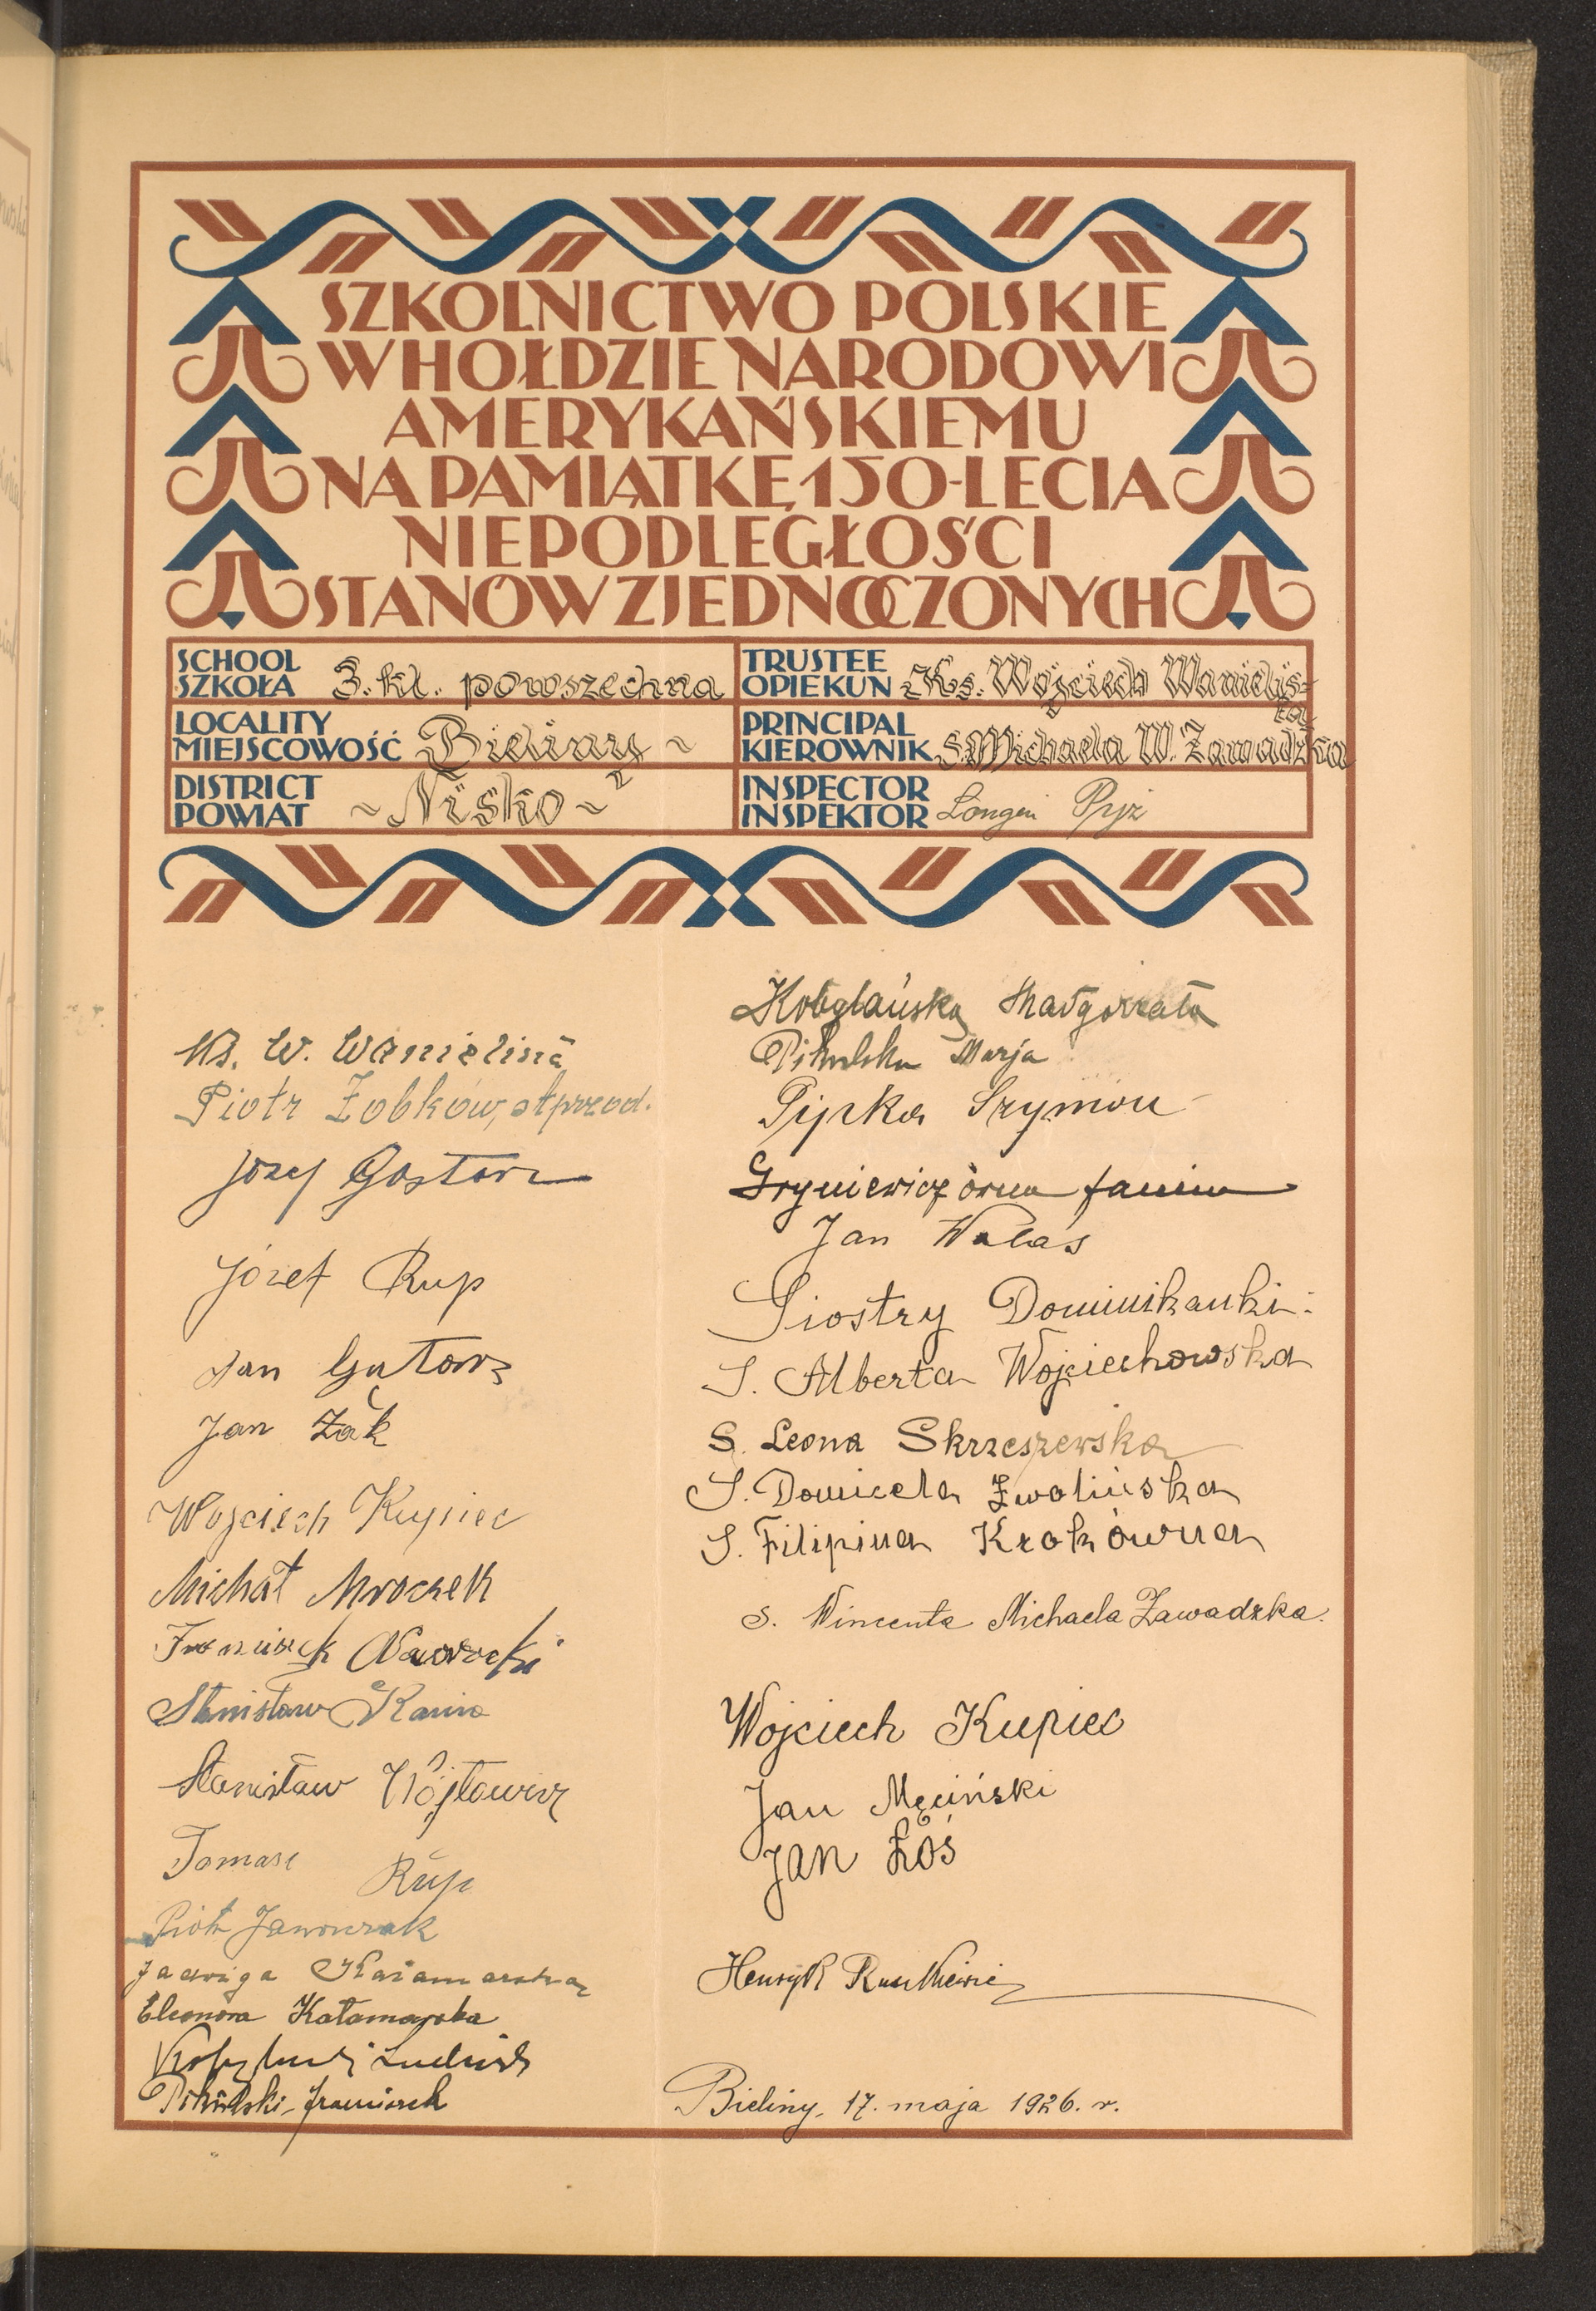 SZKOLNICTWO POLSKIE
W HOŁDZIE NARODOWI
AMERYKAŃSKIEMU
NA PAMIĄTKĘ 150-LECIA
NIEPODLEGŁOŚCI
STANÓW ZJEDNOCZONYCH
SCHOOL
SZKOŁA 3. kl. powszechna
LOCALITY
MIEJSCOWOŚĆ Bieliny
DISTRICT
POWIAT ~ Nisko ~
TRUSTEE
OPIEKUN Ks. Wojciech
PRINCIPAL
KIEROWNIK S. Michaela W. Zawadzka
INSPECTOR
INSPEKTOR Longin
Ks. W.
Piotr
Józef
Józef Rup
Jan
Jan Żak
Wojciech Kupiec
Michał Mroczek
Franciszek Nawrocki
Stanisław Kania
Stanisław Wójtowicz
Tomasz Rup
Piotr
Jadwiga
Eleonora Kałamarska
Pikulski Franciszek
Małgorzata
Pikulska Marja
Pypka Szymon
Gryniewiczówna Janina
Jan Walas
Siostry Dominikanki:
S. Alberta Wojciechowska
S. Leona Skrzeszewska
S. Domicela Zwolińska
S. Filipina Krokówna
S. Wincenta Michaela Zawadzka.
Wojciech Kupiec
Jan Męciński
Jan Łoś
Henryk
Bieliny, 17. maja 1926. r.